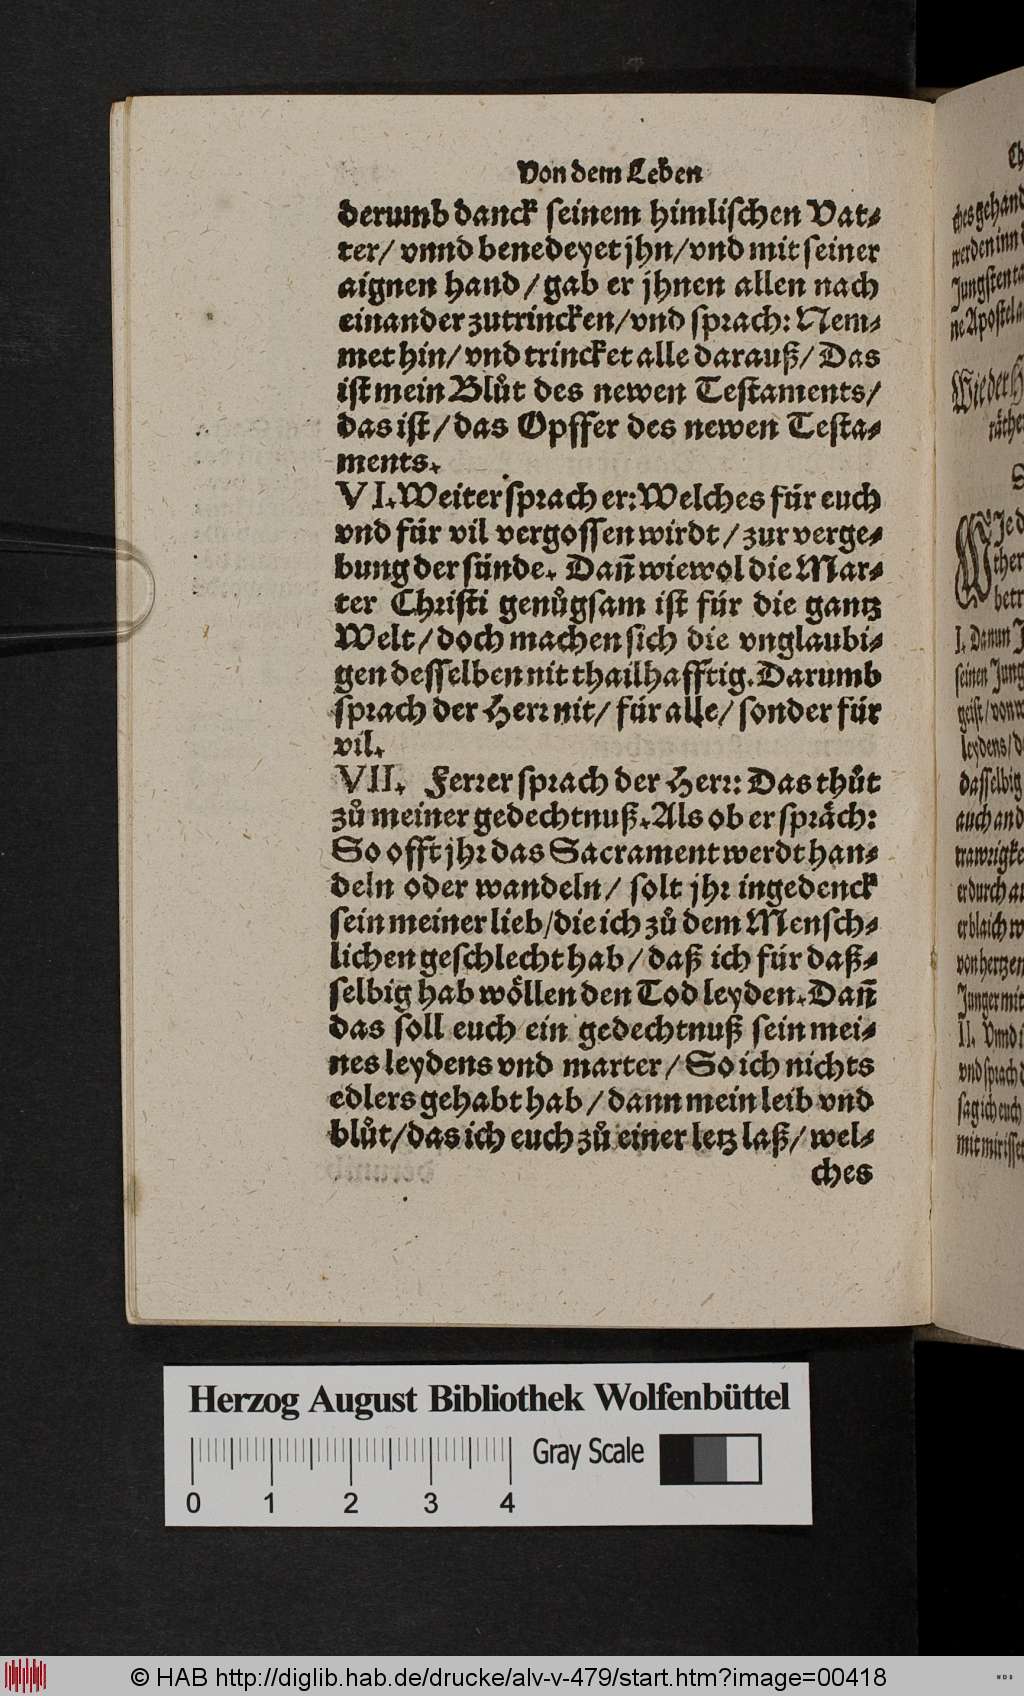 Von dem Leben
derumb danck seinem himlischen Vat-
ter/ vnnd benedeyet jhn/ vnd mit seiner
aignen hand / gab er jhnen allen nach
einander zutrincken/ vnd sprach: Nem-
met hin/ vnd trincket alle darauß/ Das
ist mein Blůt des newen Testaments/
das ist / das Opffer des newen Testa-
ments.
VI. Weiter sprach er: Welches für euch
vnd für vil vergossen wirdt / zur verge-
bung der sünde. Dañ wiewol die Mar-
ter Christi genůgsam ist für die gantz
Welt / doch machen sich die vnglaubi-
gen desselben nit thailhafftig. Darumb
sprach der Herr nit/ für alle/ sonder für
vil.
VII. Ferrer sprach der Herr: Das thůt
zů meiner gedechtnuß. Als ob er spräch:
So offt jhr das Sacrament werdt han-
deln oder wandeln/ solt jhr ingedenck
sein meiner lieb/ die ich zů dem Mensch-
lichen geschlecht hab / daß ich für daß-
selbig hab wöllen den Tod leyden. Dañ
das soll euch ein gedechtnuß sein mei-
nes leydens vnd marter / So ich nichts
edlers gehabt hab / dann mein leib vnd
blůt/ das ich euch zů einer letz laß/ wel-
ches
Ch
ches gehand
werden inn
Jungsten ta
ne Apostel
Wie der H
räthe
S
WJe d
ther
betr
I. Danun J
seinen Jung
geist / von w
leydens/ d
dasselbig
auch and
trawrigke
er durch
erblaich w
von hertzen
Junger mit
II. Vnnd
vnd sprach
sag ich euch
mit mir isset
Herzog August Bibliothek Wolfenbüttel
Gray Scale
0 1 2 3 4
© HAB http://diglib.hab.de/drucke/alv-v-479/start.htm?image=00418